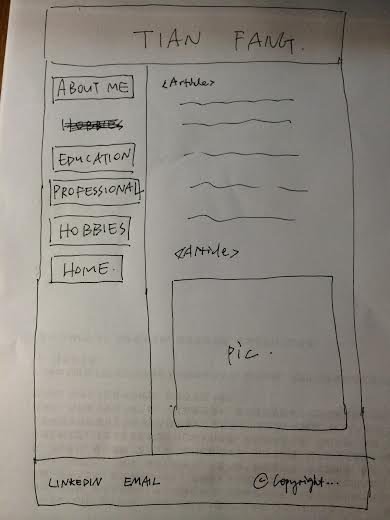 TIAN FANG.
ABOUT ME
HOBBIES
EDUCATION
PROFESSIONAL
HOBBIES
HOME.
<Article>
<Article>
pic.
LINKEDIN EMAIL © Copyright...